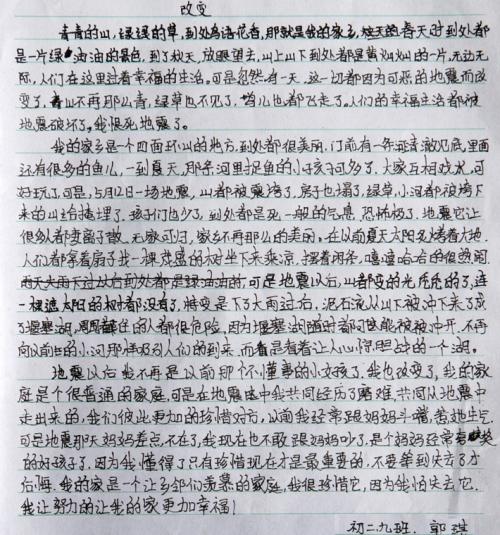 改变
青青的山，绿绿的草，到处鸟语花香，那就是我的家乡，春天时到处都
是一片绿油油的景色，到了秋天，放眼望去，山上山下到处都是黄灿灿的一片，无边无
际，人们在这里过着幸福的生活。可是忽然有一天，这一切都因为可恶的地震而改
变了，青山不再那么青，绿草也不见了，鸟儿也都飞走了。人们的幸福生活都被
地震破坏了。我恨死地震了。
我的家乡是一个四面环山的地方，到处都很美丽，门前有一条河清澈见底，里面
还有很多的鱼儿，一到夏天，那条河里捉鱼的小孩子可多了，大家互相戏水，可
好玩了，可是，5月12日一场地震，山都被震垮了，房子也塌了，绿草，小河都被垮下
来的山给掩埋了，孩子们也少了，到处都是死一般的气息，恐怖极了，地震它让
很多人都妻离子散，无家可归，家乡不再那么的美丽。在以前夏天太阳炙烤着大地，
人们都拿着扇子找一棵茂盛的树坐下来乘凉，摆着闲条，嘻嘻哈哈的很热闹
可是地震以后，山都变的光秃秃的了，连
一棵遮太阳的树都没有了，特变是下了大雨过后，泥石流从山下被冲下来了，成
了堰塞湖，周围住的人都很危险，因为堰塞湖随时都可能被被冲开，不再
向以前的小河那样吸引人们的到来，而看是看着让人心惊胆战的一个湖。
地震以后我不再是以前那个不懂事的小女孩了，我也改变了，我的家
庭是个很普通的家庭，可是在地震中我共同经历了磨难，共同从地震中
走出来的，我们彼此更加的珍惜对方，以前我经常跟妈妈斗嘴，惹她生气，
可是地震那天妈妈差点不在了，我现在也不敢跟妈妈吵了，是个妈妈经常夸奖
的好孩子了，因为我懂得了只有珍惜现在才是最重要的，不要等到失去了才
后悔，我的家是一个让乡邻们羡慕的家庭，我很珍惜它，因为我怕失去它，
我让努力的让我的家更加幸福！
初二九班，郭琪